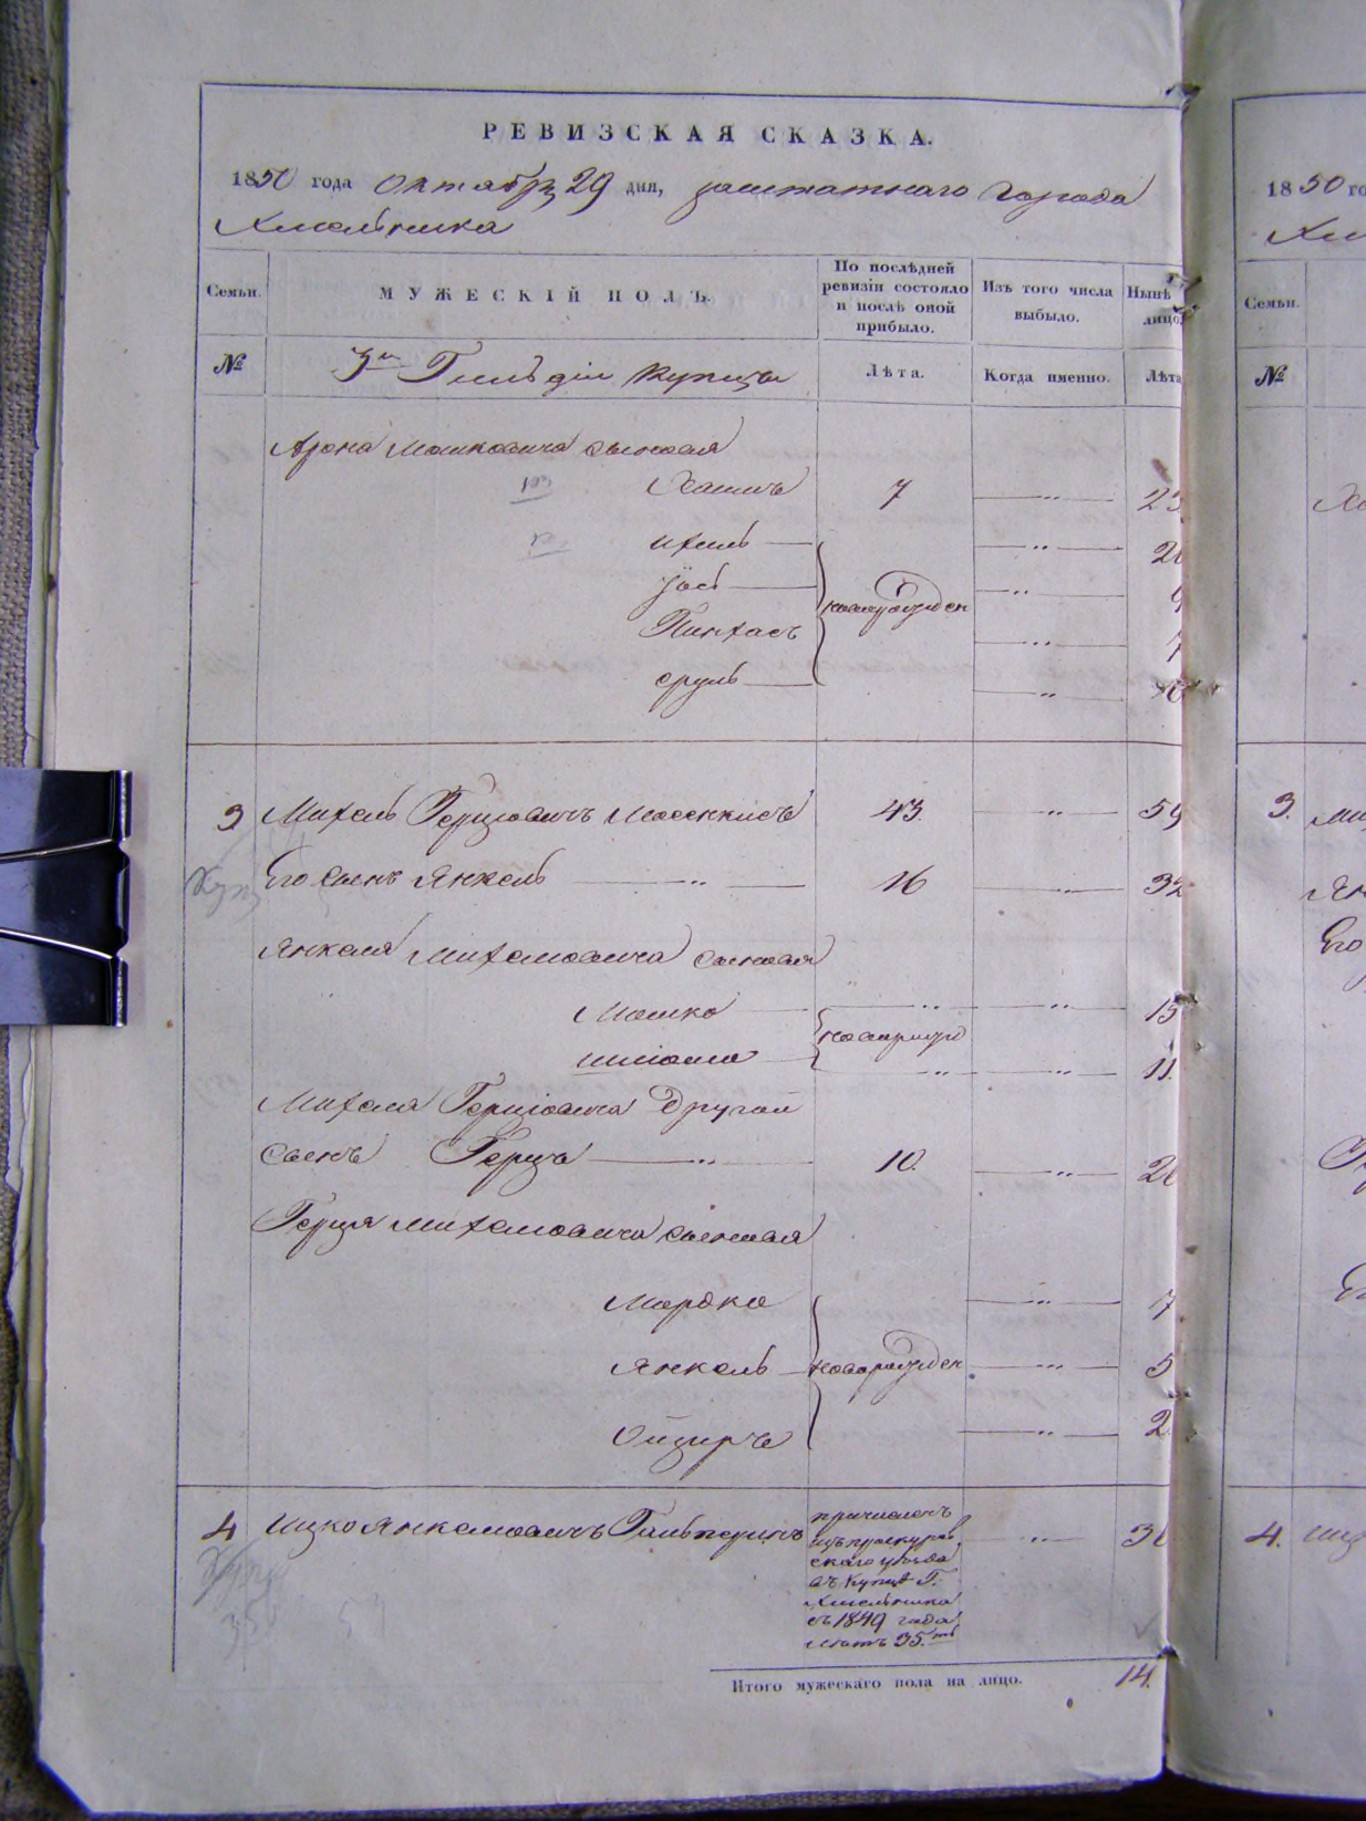 РЕВИЗСКАЯ СКАЗКА.
1850 года октября 29 дня, заштатного города
Хмельника
Семьи. МУЖЕСКІЙ ПОЛЪ. По послѣдней ревизіи состояло и послѣ оной прибыло. Изъ того числа выбыло. Нынѣ лицо
№ 3й Гильдіи Купцы Лѣта. Когда именно. Лѣта
Арона Мошковича сыновья
Хаимъ 7 23
Ихиль 20
Іось
Пинхасъ новорожден
Сруль
3 Михель Герцковичъ 43. 59
Его сынъ Янкель 16 32
Янкеля Михелювича сыновья
Мошко 15
новорожд
Шлёма 11.
Михеля Герцковича другой
сынъ Герцъ 10. 26
Герця Михелювича сыновья
Мордко 7
Янкель новорожден 5
Ойзиръ 2.
4 Ицко Янкелювичъ Гальперинъ причисленъ
изъ проскуров
скаго уѣзда
въ купцы Г.
Хмельника
съ 1849 года
лѣтъ 35.ть
Итого мужескаго пола на лицо. 14.
1850 го
Семьи.
№
3. Ми
Его
4. Иц